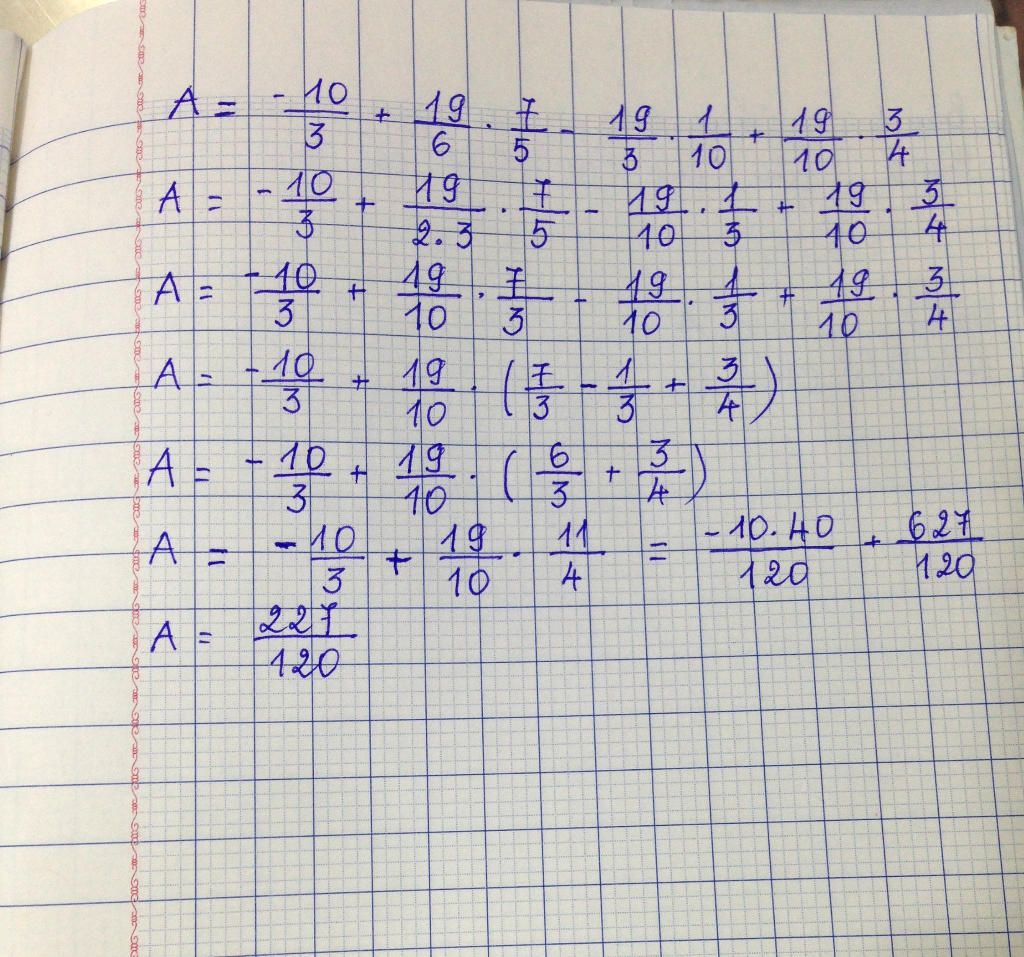 A = -10/3 + 19/6 . 7/5 - 19/3 . 1/10 + 19/10 . 3/4
A = -10/3 + 19/2.3 . 7/5 - 19/10 . 1/3 + 19/10 . 3/4
A = -10/3 + 19/10 . 7/3 - 19/10 . 1/3 + 19/10 . 3/4
A = -10/3 + 19/10 . (7/3 - 1/3 + 3/4)
A = -10/3 + 19/10 . (6/3 + 3/4)
A = -10/3 + 19/10 . 11/4 = -10.40/120 + 627/120
A = 227/120